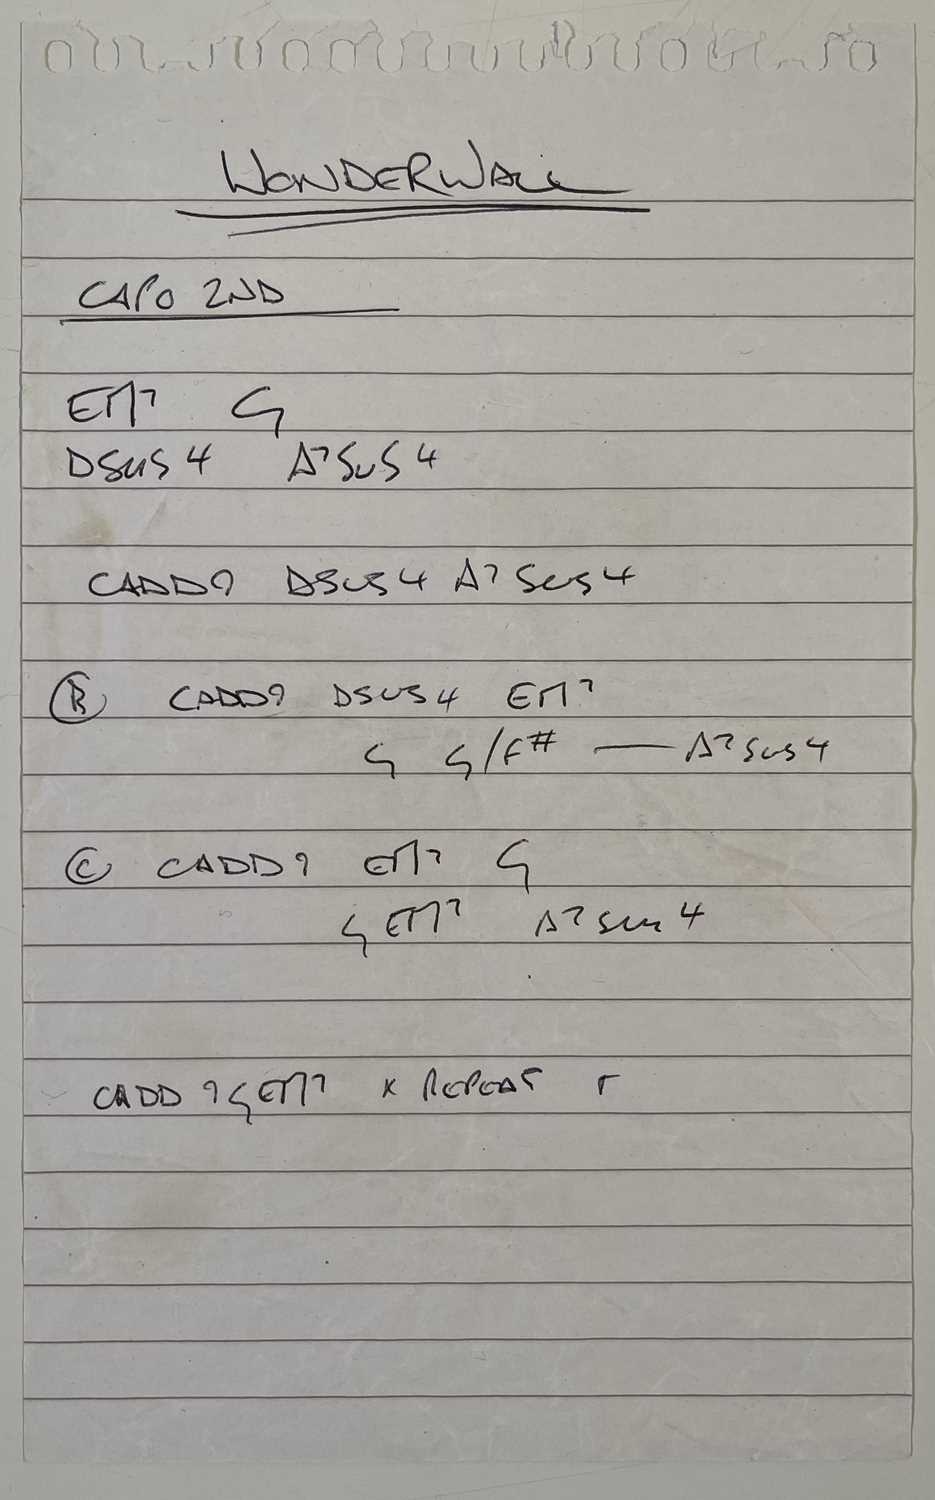 WONDERWALL
CAPO 2ND
EM7 G
DSUS4 A7SUS4
CADD9 DSUS4 A7SUS4
B CADD9 DSUS4 EM7
G G/F# — A7SUS4
C CADD9 EM7 G
G EM7 A7SUS4
CADD9 G EM7 x REPEAT